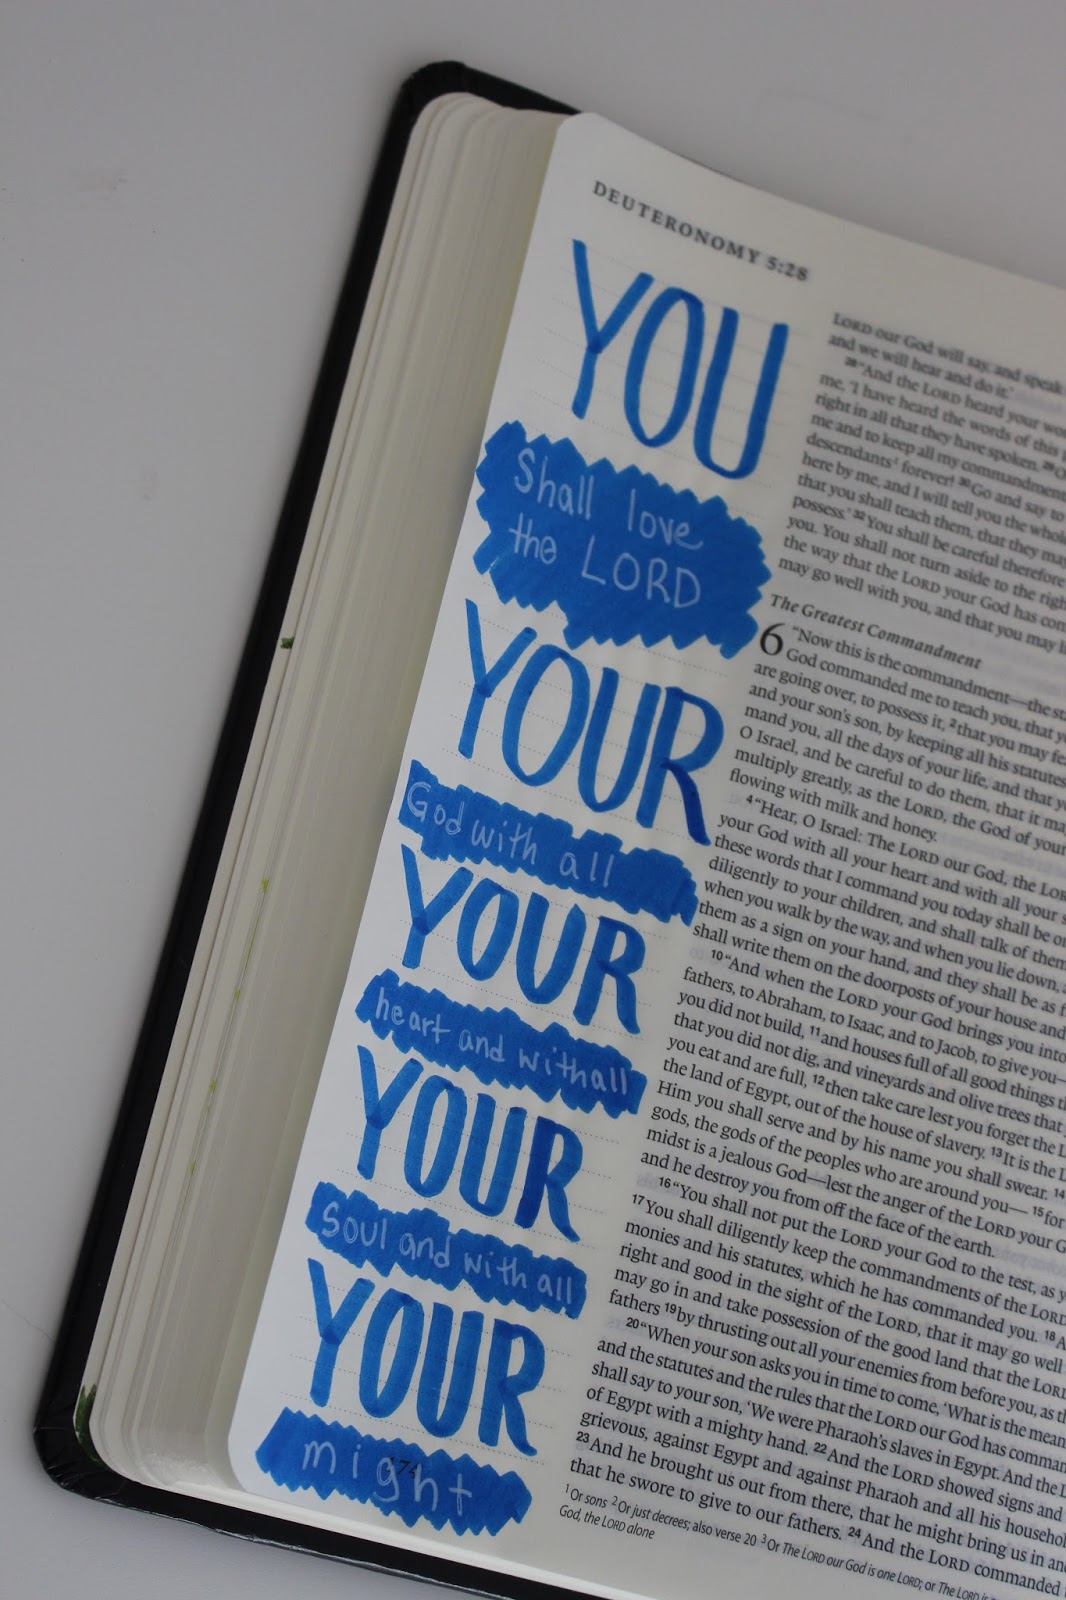 DEUTERONOMY 5:28
YOU
Shall love
the LORD
YOUR
God with all
YOUR
heart and with all
YOUR
Soul and with all
YOUR
might
174
LORD our God will say, and speak
and we will hear and do it.’
28 “And the LORD heard your
me, ‘I have heard the words of this
right in all that they have spoken. 29
me and to keep all my commandment
descendants¹ forever! 30 Go and say to
here by me, and I will tell you the whole
that you shall teach them, that they may
possess.’ 32 You shall be careful therefore
you. You shall not turn aside to the right
the way that the LORD your God has
may go well with you, and that you may
The Greatest Commandment
6 “Now this is the commandment—the
God commanded me to teach you, that
are going over, to possess it, 2 that you may
and your son’s son, by keeping all his statutes
mand you, all the days of your life, and that
O Israel, and be careful to do them, that it may
multiply greatly, as the LORD, the God of your
flowing with milk and honey.
4 “Hear, O Israel: The LORD our God, the
your God with all your heart and with all your
these words that I command you today shall be
diligently to your children, and shall talk of them
when you walk by the way, and when you lie down,
them as a sign on your hand, and they shall be as
shall write them on the doorposts of your house and
10 “And when the LORD your God brings you into
fathers, to Abraham, to Isaac, and to Jacob, to give you—
that you did not build, 11 and houses full of all good things
that you did not dig, and vineyards and olive trees that
you eat and are full, 12 then take care lest you forget the
the land of Egypt, out of the house of slavery. 13 It is the
Him you shall serve and by his name you shall swear. 14
gods, the gods of the peoples who are around you— 15 for
midst is a jealous God—lest the anger of the LORD your
and he destroy you from off the face of the earth.
16 “You shall not put the LORD your God to the test, as
17 You shall diligently keep the commandments of the
monies and his statutes, which he has commanded you. 18
right and good in the sight of the LORD, that it may go well
may go in and take possession of the good land that the
fathers 19 by thrusting out all your enemies from before you, as
20 “When your son asks you in time to come, ‘What is the
and the statutes and the rules that the LORD our God has
shall say to your son, ‘We were Pharaoh’s slaves in Egypt. And the
of Egypt with a mighty hand. 22 And the LORD showed signs and
grievous, against Egypt and against Pharaoh and all his
23 And he brought us out from there, that he might bring us in and
that he swore to give to our fathers. 24 And the LORD commanded
¹ Or sons ² Or just decrees; also verse 20 ³ Or The LORD our God is one LORD; or The LORD is
God, the LORD alone